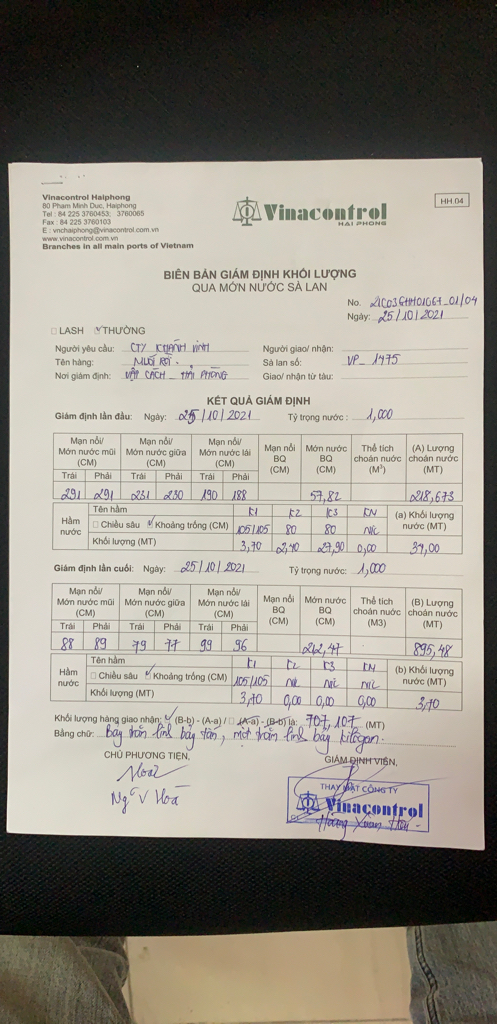 Vinacontrol Haiphong
80 Pham Minh Duc, Haiphong
Tel : 84 225 3760453; 3760065
Fax : 84 225 3760103
E : vnchaiphong@vinacontrol.com.vn
www.vinacontrol.com.vn
Branches in all main ports of Vietnam
Vinacontrol
HAI PHONG
HH.04
BIÊN BẢN GIÁM ĐỊNH KHỐI LƯỢNG
QUA MỚN NƯỚC SÀ LAN
No.
Ngày: 25/10/2021
LASH THƯỜNG
Người yêu cầu: CTY KHÁNH VINH Người giao/ nhận:
Tên hàng: MUỐI RỜI. Sà lan số: VP_1475
Nơi giám định: VẬT CÁCH _ HẢI PHÒNG Giao/ nhận từ tàu:
KẾT QUẢ GIÁM ĐỊNH
Giám định lần đầu: Ngày: 25/10/2021 Tỷ trọng nước : 1,000
Mạn nổi/ Mớn nước mũi (CM) Mạn nổi/ Mớn nước giữa (CM) Mạn nổi/ Mớn nước lái (CM) Mạn nổi BQ (CM) Mớn nước BQ (CM) Thể tích choán nước (M³) (A) Lượng choán nước (MT)
Trái Phải Trái Phải Trái Phải
291 291 231 230 190 188 57,82 218,673
Hầm nước Tên hầm K1 K2 K3 KN (a) Khối lượng nước (MT)
Chiều sâu Khoảng trống (CM) 105/105 80 80 NIL
Khối lượng (MT) 3,70 2,40 27,90 0,00 34,00
Giám định lần cuối: Ngày: 25/10/2021 Tỷ trọng nước: 1,000
Mạn nổi/ Mớn nước mũi (CM) Mạn nổi/ Mớn nước giữa (CM) Mạn nổi/ Mớn nước lái (CM) Mạn nổi BQ (CM) Mớn nước BQ (CM) Thể tích choán nước (M3) (B) Lượng choán nước (MT)
Trái Phải Trái Phải Trái Phải
88 89 79 77 99 96 212,47 895,48
Hầm nước Tên hầm K1 K2 K3 KN (b) Khối lượng nước (MT)
Chiều sâu Khoảng trống (CM) 105/105 NIL NIL NIL
Khối lượng (MT) 3,70 0,00 0,00 0,00 3,70
Khối lượng hàng giao nhận: (B-b) - (A-a) / (A-a) - (B-b) là: 707,107 (MT)
Bằng chữ: Bảy trăm linh bảy tấn, một trăm linh bảy kilogam.
CHỦ PHƯƠNG TIỆN, GIÁM ĐỊNH VIÊN,
Hoà
Ng V Hoà
THAY MẶT CÔNG TY
Vinacontrol